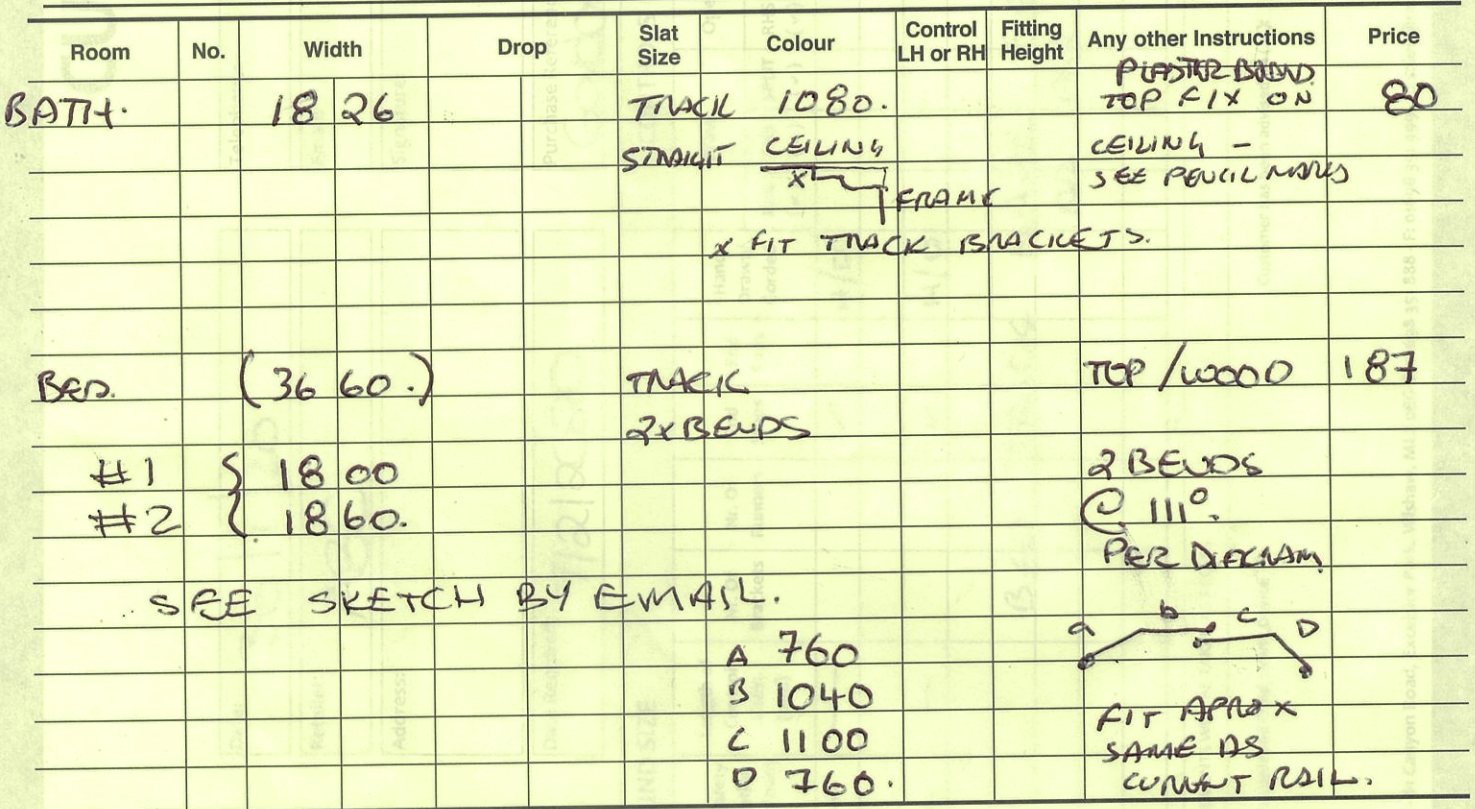 Room No. Width Drop Slat Size Colour Control LH or RH Fitting Height Any other Instructions Price
PLASTER BOARD.
BATH. 18 26 TRACK 1080. TOP FIX ON 80
STRAIGHT CEILING CEILING -
X SEE PENCIL MARKS
FRAME
x FIT TRACK BRACKETS.
BED. (36 60.) TRACK TOP / WOOD 187
2x BENDS
#1 { 18 00 2 BENDS
#2 { 18 60. @ 111°.
PER DIAGRAM
SEE SKETCH BY EMAIL.
a b c D
A 760
B 1040 FIT APROX
C 1100 SAME AS
D 760. CURRENT RAIL.